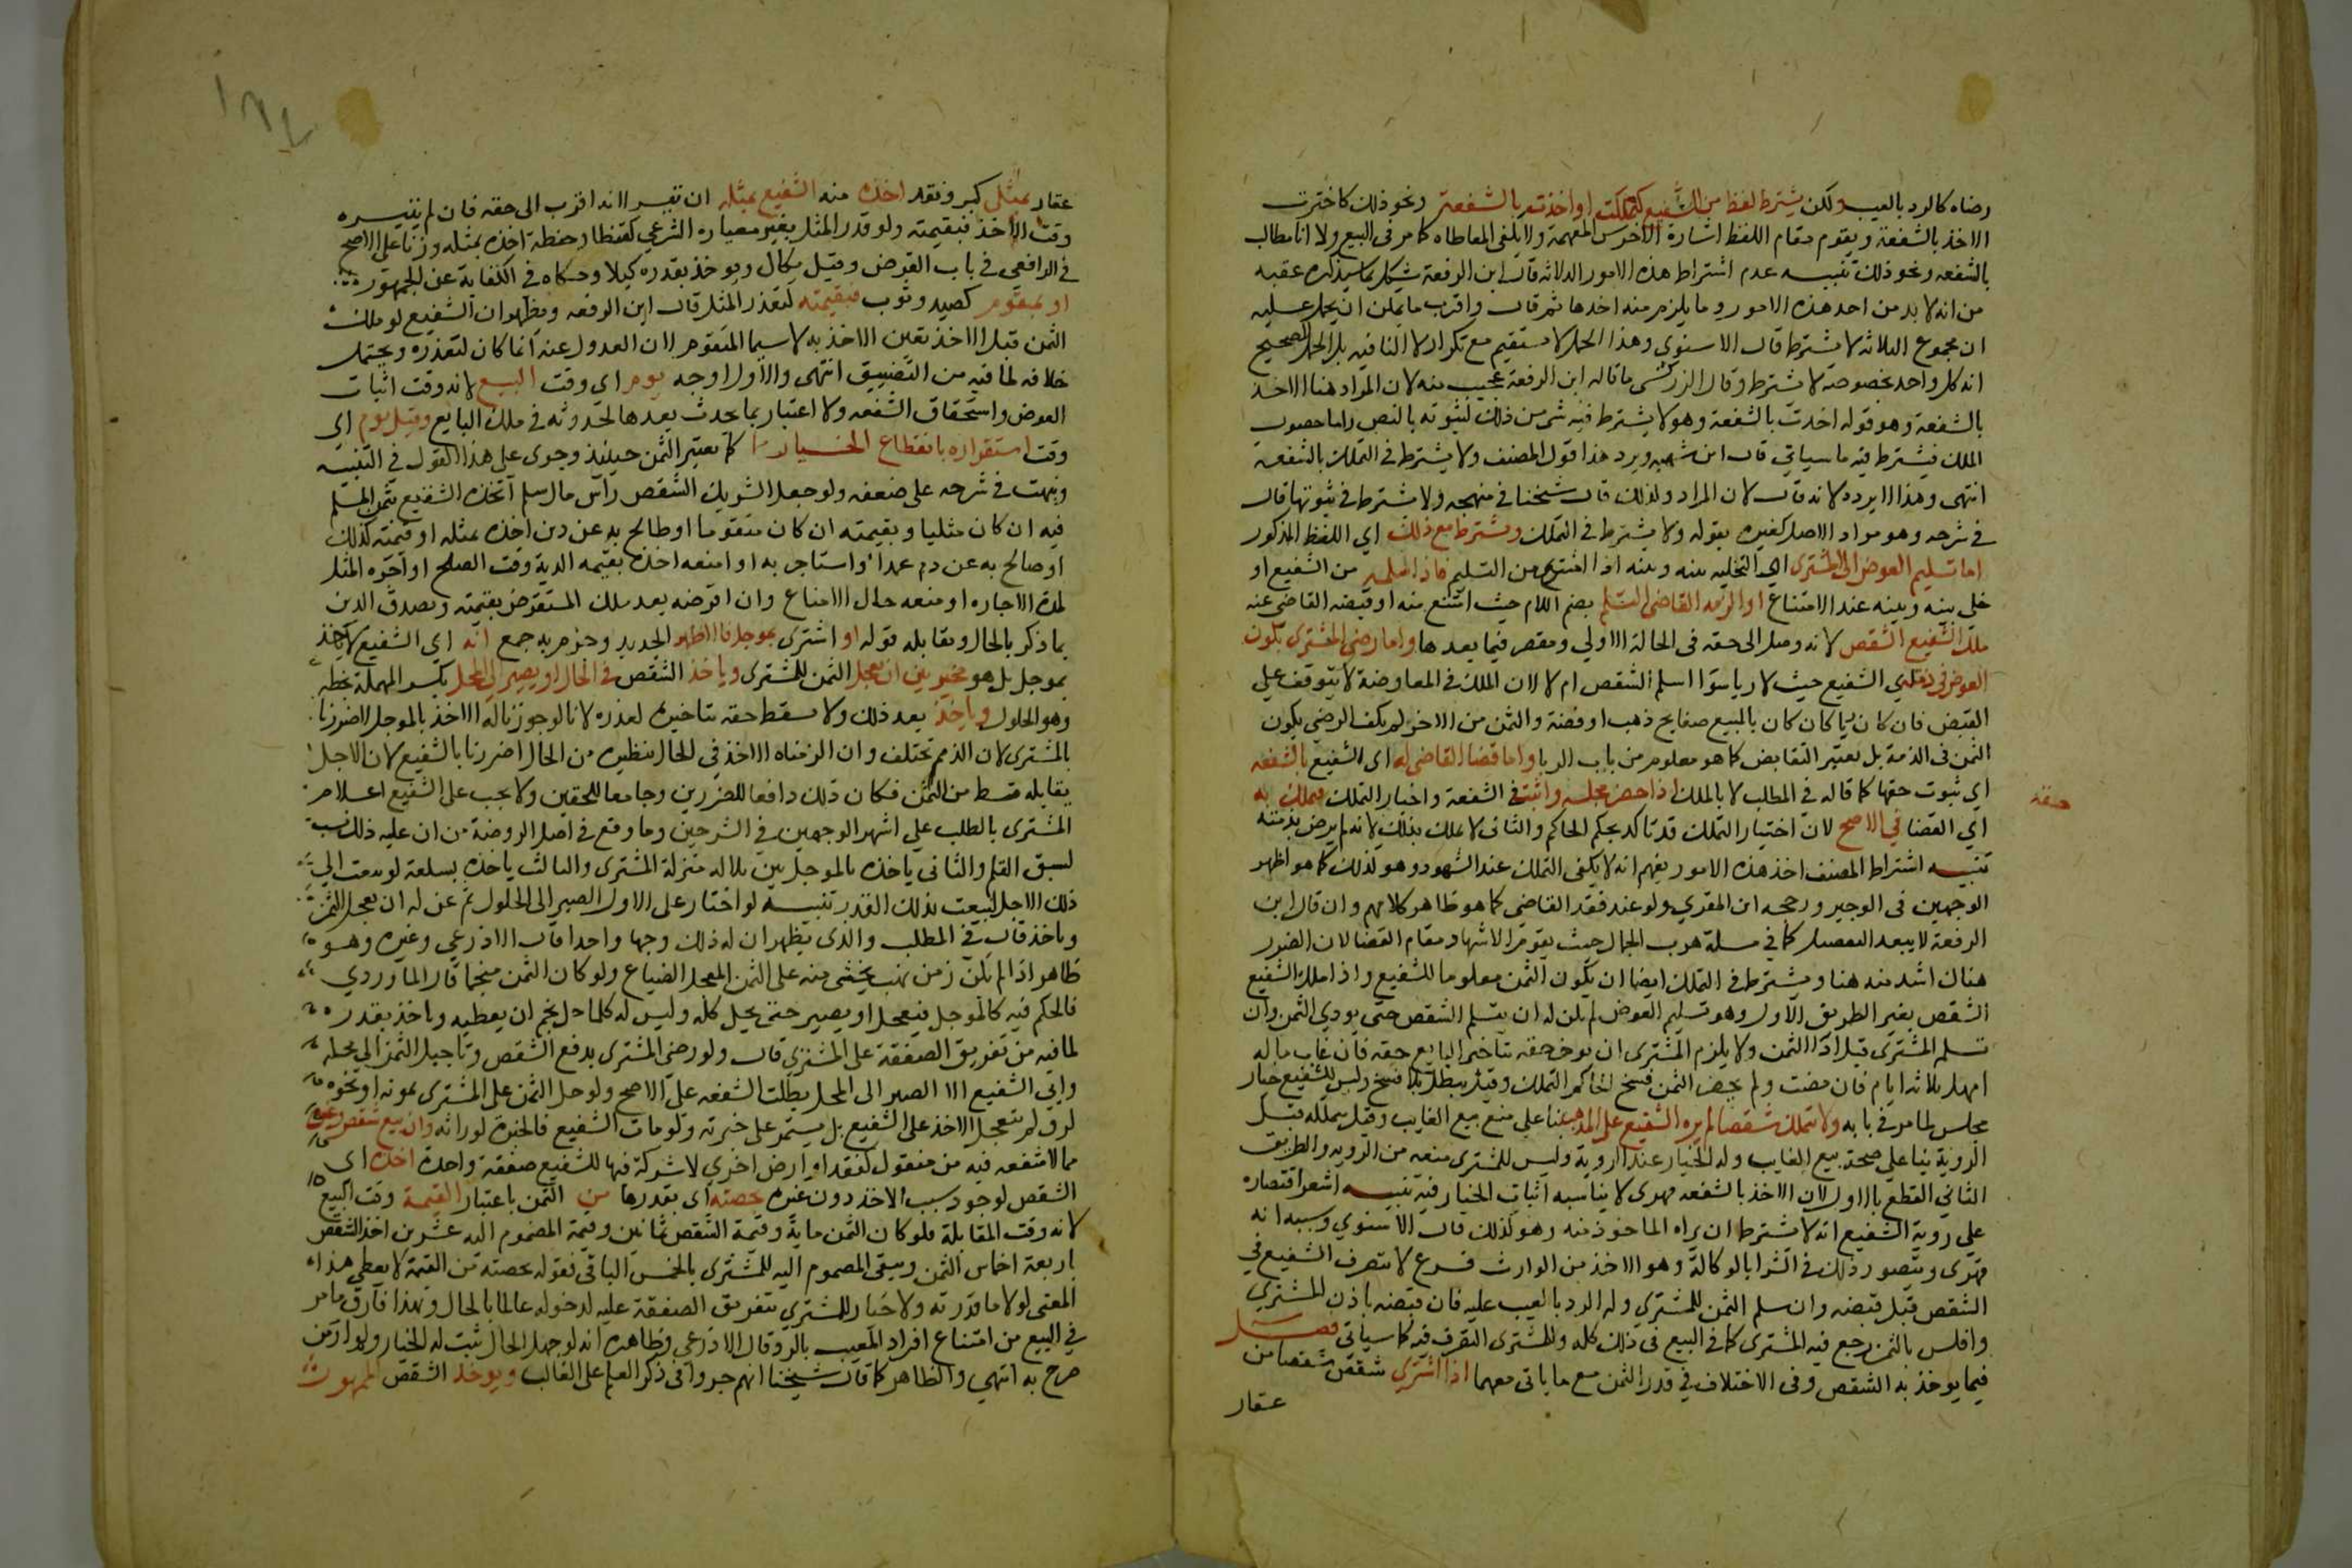 رضاه كالرد بالعيب ولكن يشترط لفظ من الشفيع كتملكت او اخذت بالشفعة ونحو ذلك كاخترت
الاخذ بالشفعة ويقوم مقام اللفظ اشارة الاخرس المفهمة ولا يكفى المعاطاه كما مر فى البيع ولا انا مطالب
بالشفعه ونحو ذلك تنبيه عدم اشتراط هذه الامور الثلاثه قال ابن الرفعة مشكل بما سيذكره عقبه
من انه لا بد من احد هذه الامور وما يلزم منه احدها ثم قال واقرب ما يمكن ان يحمل عليه
ان مجموع الثلاثه لا يشترط قال الاسنوي وهذا الحمل لا يستقيم مع تكرار لا النافيه بل الحمل الصحيح
ان كل واحد بخصوصه لا يشترط وقال الزركشى ما قاله ابن الرفعة عجيب منه لان المراد هنا الاخذ
بالشفعة وهو قوله اخذت بالشفعة وهو لا يشترط فيه شى من ذلك لثبوته بالنص واما حصول
الملك فيشترط فيه ما سياتي قال ابن شهبه ويرد هذا قول المصنف ولا يشترط فى التملك بالشفعة
انتهى وهذا لا يرده لانه قال لان المراد ولذلك قال شيخنا في منهجه ولا يشترط فى ثبوتها قال
فى شرحه وهو مراد الاصل كغيره بقوله ولا يشترط فى التملك ويشترط مع ذلك اي اللفظ المذكور
اما تسليم العوض الى المشترى اي التخليه بينه وبينه اذا امتنع من التسليم فاذا تسلمه من الشفيع او
خلى بينه وبينه عند الامتناع او الزمه القاضى التسلم بضم اللام حيث امتنع منه او قبضه القاضى عنه
ملك الشفيع الشقص لانه وصل الى حقه فى الحالة الاولي ومقصر فيما بعدها واما رضى المشترى بكون
العوض فى ذمته اي الشفيع حيث لا ربا سوا اسلم الشقص ام لا لان الملك فى المعاوضة لا يتوقف علي
القبض فان كان ربا كان كان بالمبيع صفايح ذهب او فضة والثمن من الاخر لم يكف الرضى بكون
الثمن فى الذمة بل يعتبر التقابض كما هو معلوم من باب الربا واما قضا القاضى له اى الشفيع بالشفعه
اي ثبوت حقها كما قاله فى المطلب لا بالملك اذا حضر مجلسه واثبت حقه فى الشفعة واختار التملك فيملك به
اي القضا في الاصح لان اختيار التملك قد تاكد بحكم الحاكم والثانى لا يملك بذلك لانه لم يرض بذمته
تنبيه اشتراط المصنف احد هذه الامور يفهم انه لا يكفى التملك عند الشهود وهو كذلك كما هو اظهر
الوجهين فى الوجيز ورجحه ابن المقري ولو عند فقد القاضى كما هو ظاهر كلامهم وان قال ابن
الرفعة لا يبعد التفصيل كما في مسلة هرب الجمال حيث يقوم الاشهاد مقام القضا لان الضرر
هناك اشد منه هنا ويشترط فى التملك ايضا ان يكون الثمن معلوما للشفيع واذا ملك الشفيع
الشقص بغير الطريق الاول وهو تسليم العوض لم يكن له ان يتسلم الشقص حتى يودي الثمن وان
تسلم المشترى قبل ادا الثمن ولا يلزم المشترى ان يوخر حقه بتاخير البايع حقه فان غاب ماله
امهل ثلاثه ايام فان مضت ولم يحضر الثمن فسخ الحاكم التملك وقيل يبطل بلا فسخ وليس للشفيع خيار
مجلس لما مر فى بابه ولا يتملك شقصا لم يره الشفيع على المذهب بنا على منع بيع الغايب وقيل يتملكه قبل
الروية بنا على صحة بيع الغايب وله الخيار عند الروية وليس للمشترى منعه من الرويه والطريق
الثاني القطع بالاول لان الاخذ بالشفعه قهرى لا يناسبه اثبات الخيار فيه تنبيه اشعر اقتصاره
على روية الشفيع انه لا يشترط ان يراه الماخوذ منه وهو كذلك قال الاسنوي وسببه انه
قهرى ويتصور ذلك فى الشرا بالوكالة وهو الاخذ من الوارث فرع لا يتصرف الشفيع في
الشقص قبل قبضه وان سلم الثمن للمشتري وله الرد بالعيب عليه فان قبضه باذن المشتري
وافلس بالثمن رجع فيه المشترى كما فى البيع فى ذلك كله وللمشترى التصرف فيه كما سياتى فصل
فيما يوخذ به الشقص وفى الاختلاف في قدر الثمن مع ما ياتى معهما اذا اشتري شخص شقصا من
عقار
حقه
عقار بمثلى كبر ونقد اخذه منه الشفيع بمثله ان تيسر لانه اقرب الى حقه فان لم يتيسره
وقت الاخذ فبقيمته ولو قدر المثل بغير معياره الشرعي كقنطار حنطة اخذه بمثله وزنا على الاصح
فى الرافعى فى باب القرض وقيل يكال ويوخذ بقدره كيلا وحكاه فى الكفاية عن الجمهور
او بمتقوم كعبيد وثوب فبقيمته لتعذر المثل قال ابن الرفعه ويظهر ان الشفيع لو ملك
الثمن قبل الاخذ تعين الاخذ به لا سيما المتقوم لان العدول عنه انما كان لتعذره ويحتمل
خلافه لما فيه من التضييق انتهى والاول اوجه يوم اى وقت البيع لانه وقت اثبات
العوض واستحقاق الشفعه ولا اعتبار بما يحدث بعدها لحدوثه فى ملك البايع وقيل يوم اى
وقت استقراره بانقطاع الخيار كما يعتبر الثمن حينئذ وجرى على هذا القول فى التنبيه
ونبهت فى شرحه على ضعفه ولو جعل الشريك الشقص راس مال سلم اخذه الشفيع بثمن المسلم
فيه ان كان مثليا وبقيمته ان كان متقوما او صالح به عن دين اخذه بمثله او قيمته كذلك
او صالح به عن دم عمدا واستاجر به او امتعه اخذه بقيمه الدية وقت الصلح او اجره المثل
لمدة الاجاره او متعه حال الامتاع وان اقرضه بعد ملك المستقرض بقيمته وبصدق الدين
بما ذكر بالحال ومقابله قوله او اشترى بموجل فالاظهر الجديد وجزم به جمع انه اي الشفيع لا ياخذ
بموجل بل هو مخير بين ان يعجل الثمن للمشترى وياخذ الشقص فى الحال او يصبر الى المحل بكسر المهملة بخطه
وهو الحلول وياخذ بعد ذلك ولا يسقط حقه بتاخيره لعذره لانا لو جوزنا له الاخذ بالموجل لاضررنا
بالمشترى لان الذمم تختلف وان الزمناه الاخذ فى الحال بنظيره من الحال اضررنا بالشفيع لان الاجل
يقابله قسط من الثمن فكان ذلك دافعا للضررين وجامعا للحقين ولا يجب على الشفيع اعلام
المشترى بالطلب علي اشهر الوجهين فى الشرحين وما وقع فى اصل الروضة من ان عليه ذلك نسب
لسبق القلم والثانى ياخذه بالموجل تنزيلا له منزلة المشترى والثالث ياخذه بسلعة لو بيعت الي
ذلك الاجل لبيعت بذلك القدر تنبيه لو اختار على الاول الصبر الى الحلول ثم عن له ان يعجل الثمن
وياخذ قال فى المطلب والذى يظهر ان له ذلك وجها واحدا قال الاذرعي وغيره وهو
ظاهر اذا لم يكن زمن نهب يخشى منه على الثمن المعجل الضياع ولو كان الثمن منجما قال الماوردي
فالحكم فيه كالموجل فيعجل او يصبر حتى يحل كله وليس له كلما حل نجم ان يعطيه وياخذ بقدره
لما فيه من تفريق الصفقة على المشترى قال ولو رضى المشترى بدفع الشقص وتاجيل الثمن الى محله
وابى الشفيع الا الصبر الى المحل بطلت الشفعه على الاصح ولو حل الثمن على المشترى بموته او نحوه
لرق لم يتعجل الاخذ على الشفيع بل يستمر على خيرته ولو مات الشفيع فالخيرة لوراثه وان بيع شقص وغيره
مما لا شفعه فيه من منقول كنقد او ارض اخري لا شركة فيها للشفيع صفقة واحدة اخذه اى
الشقص لوجود سبب الاخذ دون غيره بحصته اى بقدرها من الثمن باعتبار القيمة وقت البيع
لانه وقت المقابلة فلو كان الثمن ماية وقيمة الشقص ثمانين وقيمة المضموم اليه عشرين اخذ الشقص
باربعة اخماس الثمن ويبقى المضموم اليه للمشترى بالخمس الباقى فقوله بحصته من القيمة لا يعطى هذا
المعنى لولا ما قدرته ولا خيار للمشتري بتفريق الصفقة عليه لدخوله عالما بالحال وبهذا فارق ما مر
في البيع من امتناع افراد المعيب بالرد قال الاذرعى وظاهره انه لو جهل الحال ثبت له الخيار ولم ار من
صرح به انتهى والظاهر كما قال شيخنا انهم جروا فى ذكر العلم على الغالب ويوخذ الشقص الممهور